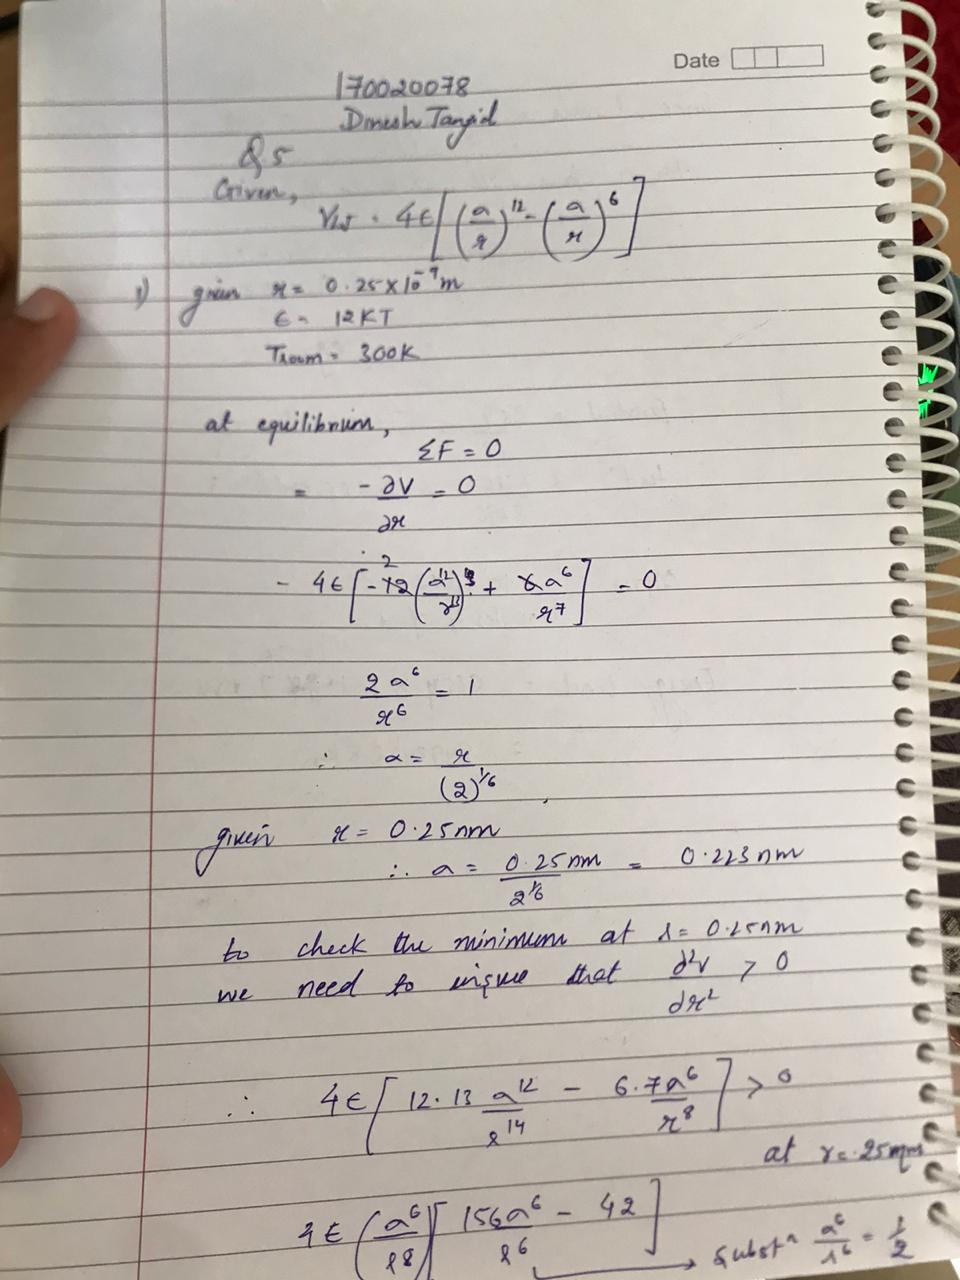 Date
170020078
Dinesh
Q5
Given,
VLJ = 4ϵ[(a/r)^12 - (a/r)^6]
1) given r = 0.25×10^-9 m
ϵ = 12KT
Troom = 300K
at equilibrium,
ΣF = 0
= -∂V/∂r = 0
- 4ϵ[-12(a^12/r^13) + 6a^6/r^7] = 0
2a^6/r^6 = 1
∴ a = r/(2)^1/6
given r = 0.25nm
∴ a = 0.25nm/2^1/6 = 0.223nm
to check the minimum at r = 0.25nm
we need to that d²V/dr² > 0
∴ 4ϵ[12.13 a^12/r^14 - 6.7a^6/r^8] > 0
at r = .25nm
4ϵ(a^6/r^8)[156a^6/r^6 - 42]
→ Subst^n a^6/r^6 = 1/2